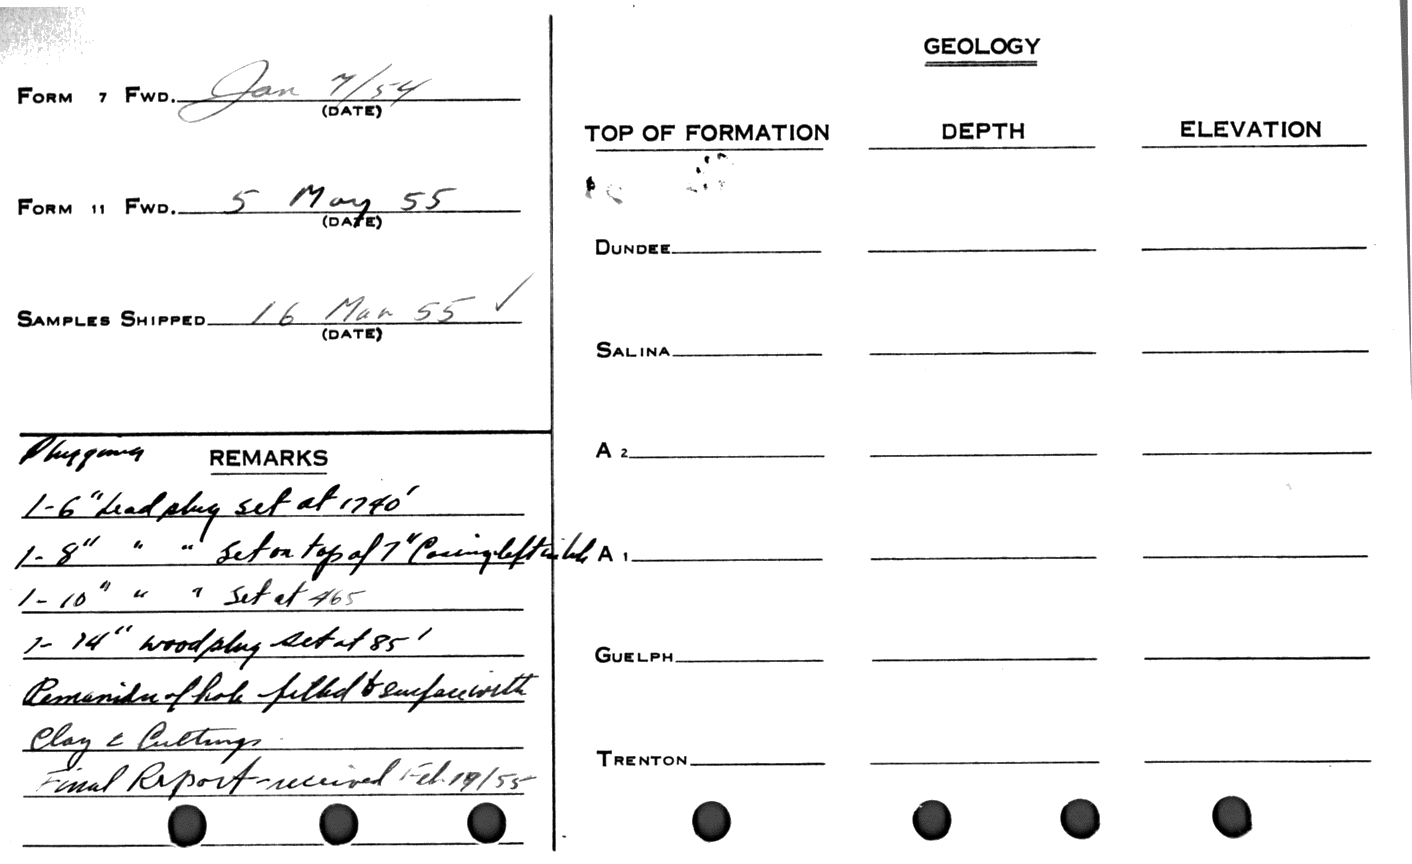 FORM 7 FWD. Jan 7/54
(DATE)
FORM 11 FWD. 5 May 55
(DATE)
SAMPLES SHIPPED 16 Mar 55 ✓
(DATE)
Plugging REMARKS
1-6" Lead plug set at 1740'
1-8" " " set on top of 7" Casing left in hole
1-10" " " set at 465
1-14" wood plug set at 85'
Remainder of hole filled to surface with
Clay & Cuttings.
Final Report received Feb 19/55
GEOLOGY
TOP OF FORMATION DEPTH ELEVATION
DUNDEE
SALINA
A 2
A 1
GUELPH
TRENTON